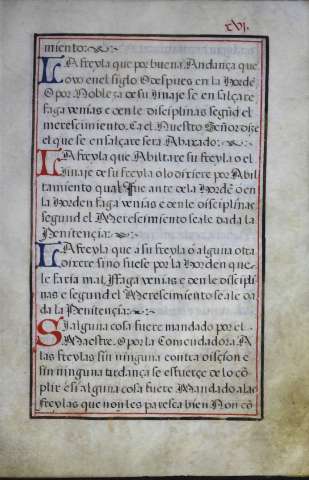 cvj.
miento:
LA freyla que por buena Andança que
ovo en el siglo O despues en la hordẽ
O por Nobleza de su linaje se en salçare
faga venias e den le disciplinas segũd el
merescimiento. Ca el Nuestro Señor dize
el que se en salçare sera Abaxado:
LA freyla que Abiltare su freyla o el
linaje de su freyla o lo dixiere por Abil
tamiento qual fue ante dela hordẽ o en
la horden faga venias e den le disciplinas
segund el Merescimiento se ale dada la
Penitençia:
LA freyla que a su freyla o alguna otra
dixere sino fuese por la horden que
le faria mal ffaga venias e den le discipli
nas e segund el Merescimiento se ale da
da la Penitençia:
SI alguna cosa fuere mandado por el
Maestre. O por la Comendadora. A
las freylas sin ninguna contra discion e
sin ninguna tardança se esfuerçe de lo cõ
plir e si alguna cosa fuere Mandado alas
freylas que non les paresca bien Non cõ